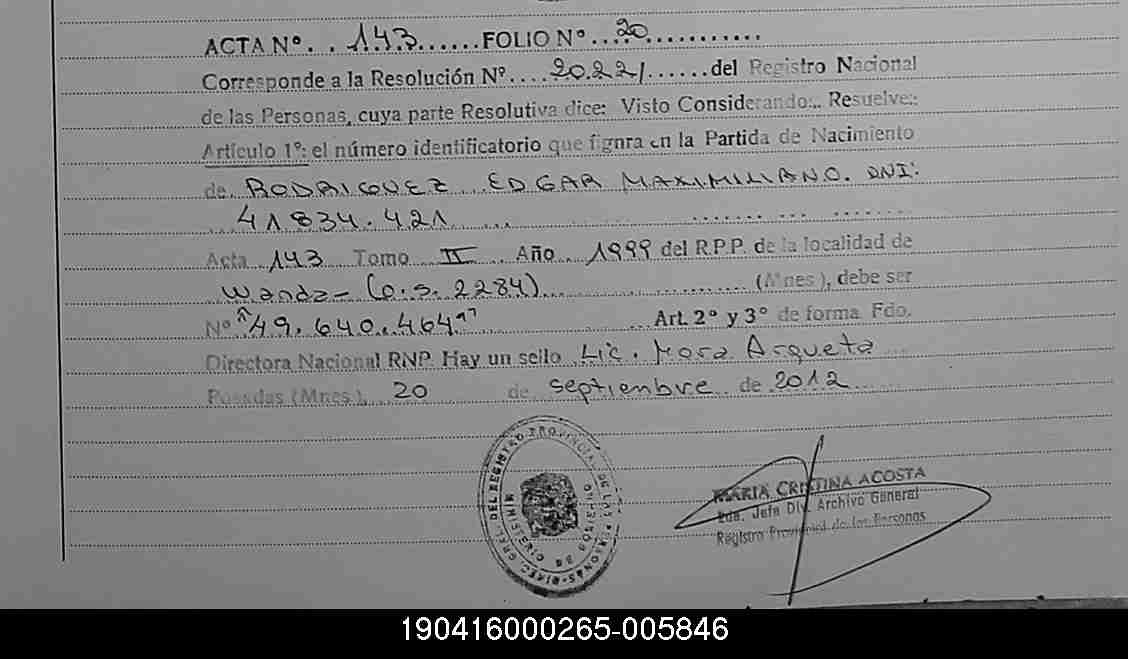 ACTA Nº... 143.......FOLIO Nº....20............
Corresponde a la Resolución Nº....2022/......del Registro Nacional
de las Personas, cuya parte Resolutiva dice: Visto Considerando:.. Resuelve:
Artículo 1º: el número identificatorio que fignra en la Partida de Nacimiento
de RODRIGUEZ EDGAR MAXIMILIANO. DNI:
41834.421
Acta 143 Tomo II Año 1999 del R.P.P. de la localidad de
Wanda-(o.s. 2284)............(Mnes), debe ser
Nº "49.640.464" ...Art. 2º y 3º de forma Fdo.
Directora Nacional RNP. Hay un sello Lic. Mora Arqueta
Posadas (Mnes), 20 de septiembre de 2012
REGISTRO PROVINCIAL DE LAS PERSONAS
MARIA CRISTINA ACOSTA
2da. Jefa Div. Archivo General
Registro Provincial de las Personas
190416000265-005846